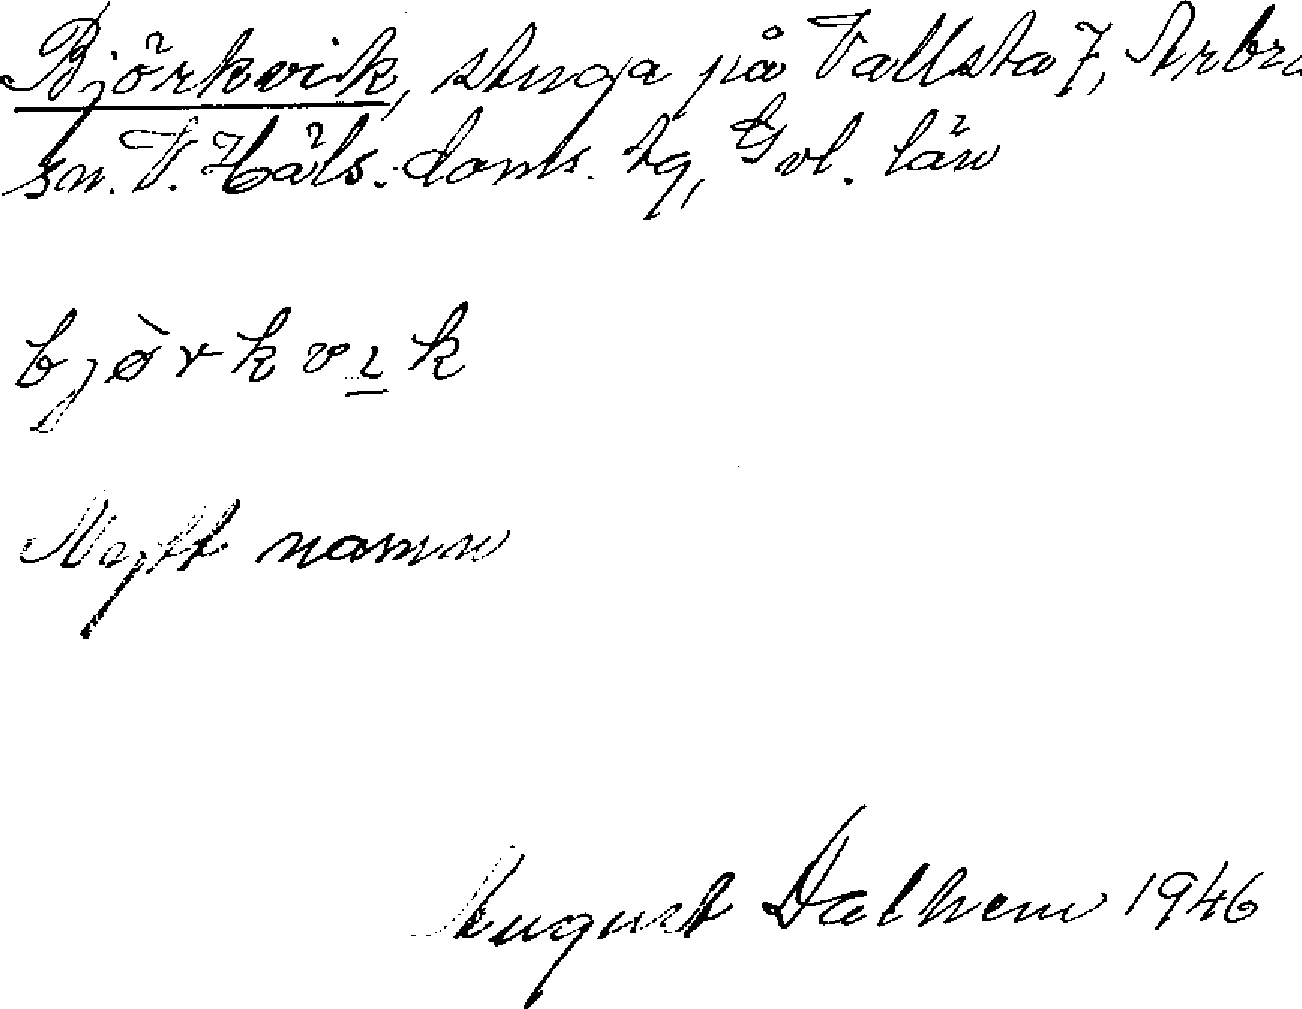 Björkvik, stuga på Vallsta 7, Arbrå
sn. V. Häls. doms. tg, Gvl. län
bjòrkvık
Nytt namn
August Dalhem 1946